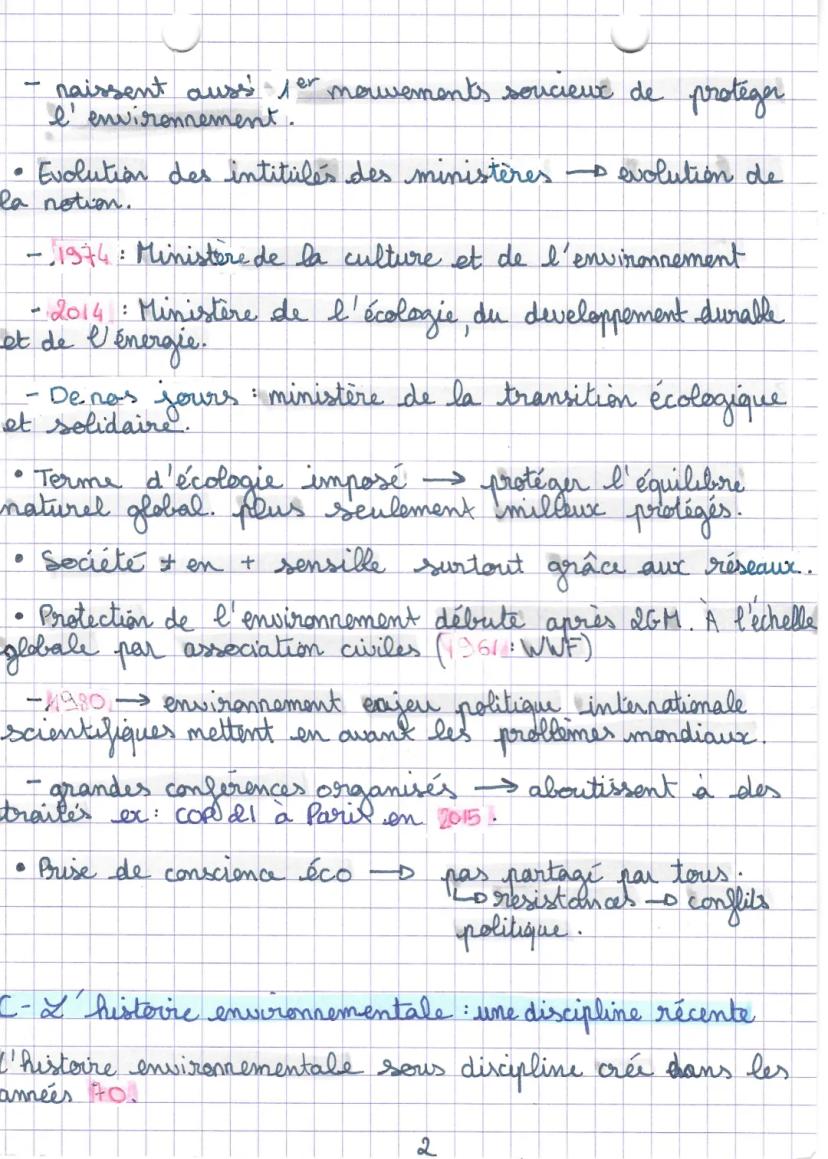 - naissent aussi 1er mouvements soucieux de protéger
l'environnement.
• Evolution des intitulés des ministères → evolution de
la notion.
- 1974 : Ministère de la culture et de l'environnement
- 2014 : Ministère de l'écologie, du developpement durable
et de l'énergie.
- De nos jours : ministère de la transition écologique
et solidaire.
• Terme d'écologie imposé → protéger l'équilibre
naturel global. plus seulement milieux protégés.
• Société + en + sensible surtout grâce aux réseaux.
• Protection de l'environnement débute après 2GM. À l'échelle
globale par association civiles (1961 : WWF)
- 1980 → environnement enjeu politique internationale
scientifiques mettent en avant les problèmes mondiaux.
- grandes conférences organisés → aboutissent à des
traités ex : COP 21 à Paris en 2015.
• Prise de conscience éco → pas partagé par tous.
↳ résistances → conflits
politique.
C - L'histoire environnementale : une discipline récente
l'histoire environnementale sous discipline crée dans les
années 70.
2